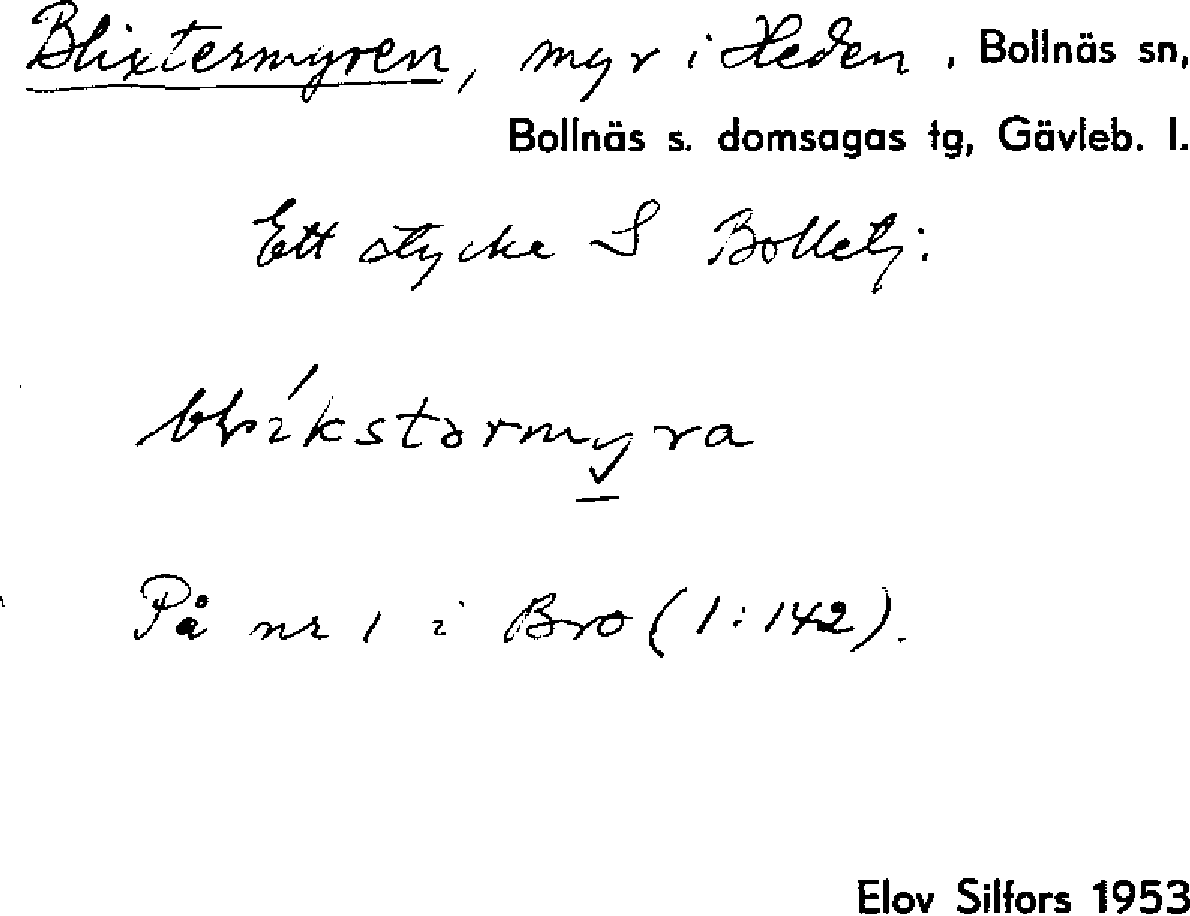 Blixtermyren, myr i Heden, Bollnäs sn,
Bollnäs s. domsagas tg, Gävleb. l.
Ett stycke S Bolletj:
På nr 1 i Bro (1:142).
Elov Silfors 1953